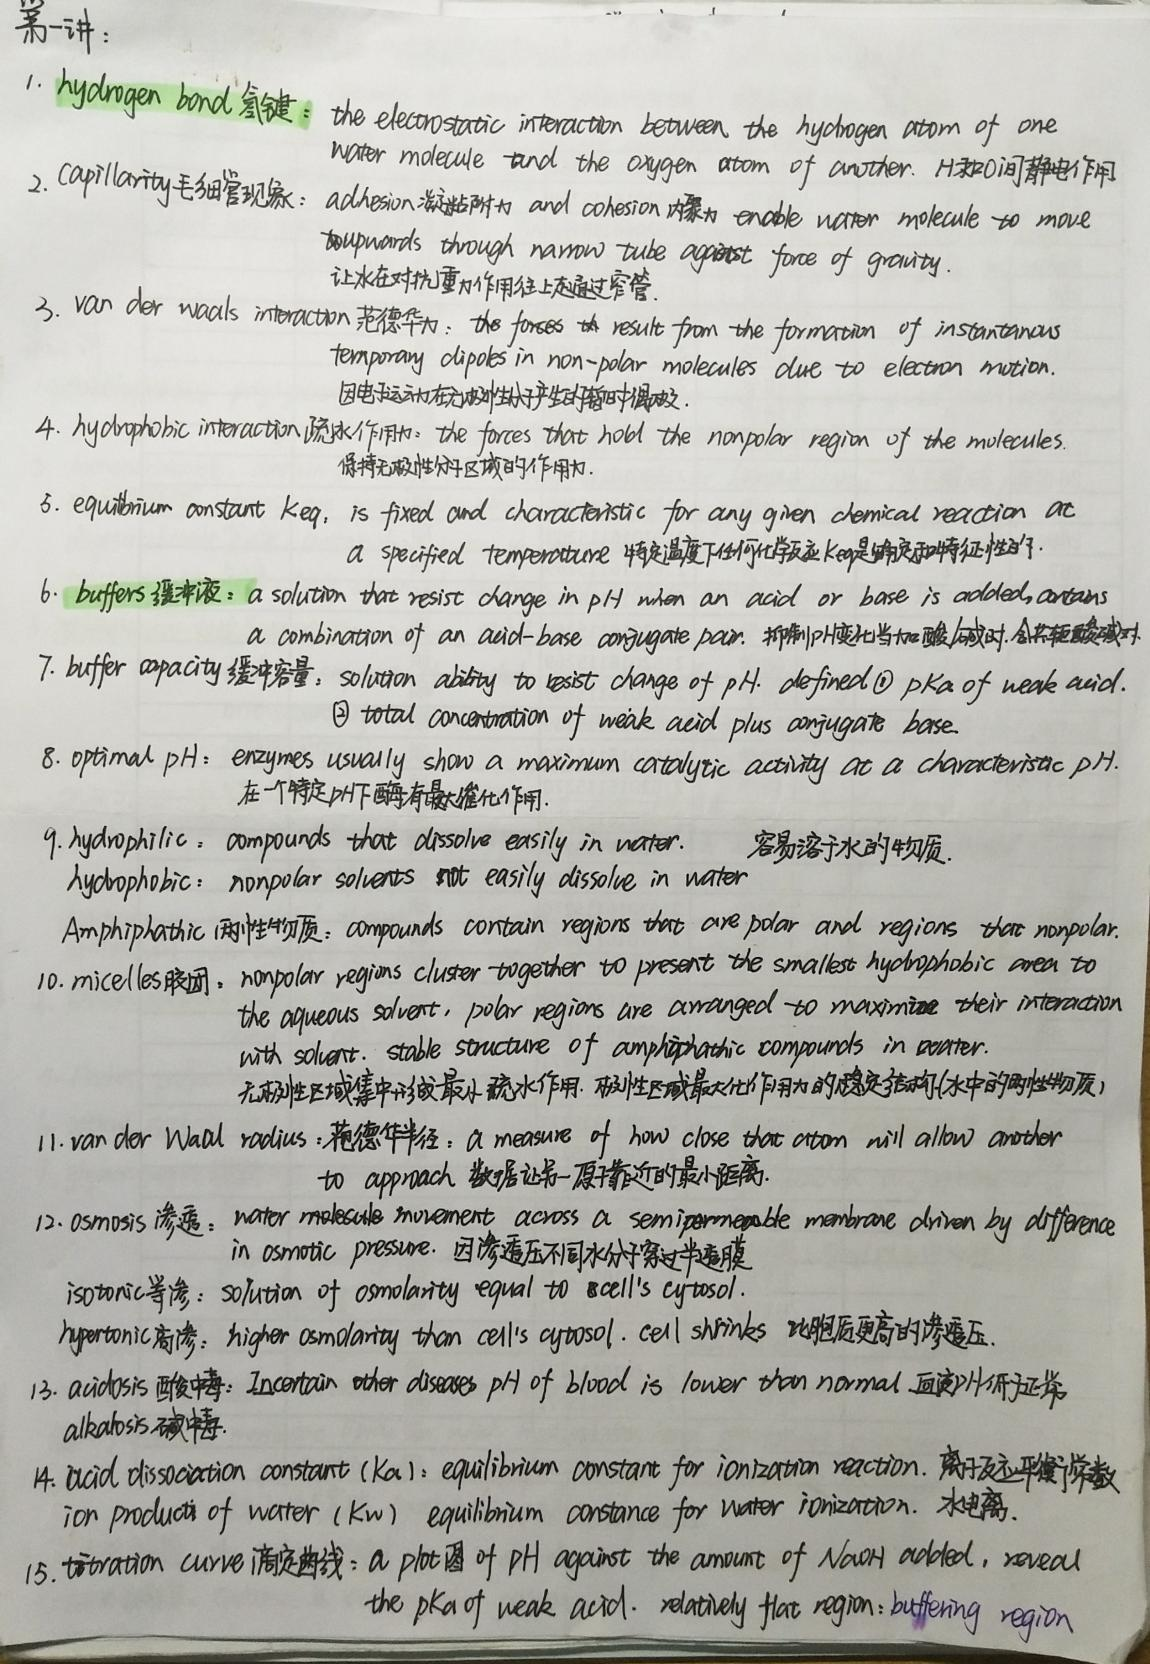 第一讲：
1. hydrogen bond 氢键： the electrostatic interaction between the hydrogen atom of one
water molecule and the oxygen atom of another. H和O间静电作用
2. capillarity毛细管现象： adhesion 粘附力 and cohesion 内聚力 enable water molecule to move
upwards through narrow tube against force of gravity.
让水在对抗重力作用往上走通过窄管.
3. van der waals interaction 范德华力： the forces result from the formation of instantanous
temporary dipoles in non-polar molecules due to electron motion.
因电子运动在无极性分子产生的暂时偶极.
4. hydrophobic interaction 疏水作用力： the forces that hold the nonpolar region of the molecules.
保持无极性分子区域的作用力.
5. equilibrium constant Keq, is fixed and characteristic for any given chemical reaction at
a specified temperature 特定温度下任何化学反应Keq是确定和特征性的.
6. buffers 缓冲液： a solution that resist change in pH when an acid or base is added, contains
a combination of an acid-base conjugate pair. 抑制pH变化当加酸/碱时.含共轭酸碱对.
7. buffer capacity 缓冲容量： solution ability to resist change of pH. defined ① pKa of weak acid.
② total concentration of weak acid plus conjugate base.
8. optimal pH： enzymes usually show a maximum catalytic activity at a characteristic pH.
在一个特定pH下酶有最大催化作用.
9. hydrophilic： compounds that dissolve easily in water. 容易溶于水的物质.
hydrophobic： nonpolar solvents not easily dissolve in water
Amphiphathic 两性物质： compounds contain regions that are polar and regions that nonpolar.
10. micelles胶团： nonpolar regions cluster together to present the smallest hydrophobic area to
the aqueous solvent, polar regions are arranged to maximize their interaction
with solvent. stable structure of amphiphathic compounds in water.
无极性区域集中形成最小疏水作用. 极性区域最大化作用力的稳定结构(水中的两性物质)
11. van der Waal radius：范德华半径： a measure of how close that atom will allow another
to approach 数据让另一原子靠近的最小距离.
12. osmosis 渗透： water molecule movement across a semipermeable membrane driven by difference
in osmotic pressure. 因渗透压不同水分子穿过半透膜
isotonic等渗： solution of osmolarity equal to cell's cytosol.
hypertonic高渗： higher osmolarity than cell's cytosol. cell shrinks 比胞质更高的渗透压.
13. acidosis 酸中毒： In certain other diseases pH of blood is lower than normal 血液pH低于正常
alkalosis 碱中毒.
14. acid dissociation constant (Ka)： equilibrium constant for ionization reaction. 离子反应平衡常数
ion product of water (Kw) equilibrium constance for water ionization. 水电离.
15. titration curve 滴定曲线： a plot图 of pH against the amount of NaOH added, reveal
the pKa of weak acid. relatively flat region: buffering region